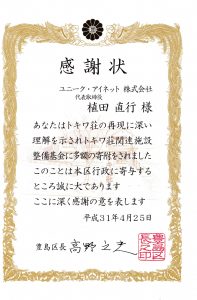 感謝状
ユニーク・アイネット 株式会社
代表取締役
植田 直行 様
あなたはトキワ荘の再現に深い
理解を示されトキワ荘関連施設
整備基金に多額の寄附をされました
このことは本区行政に寄与する
ところ誠に大であります
ここに深く感謝の意を表します
平成31年4月25日
豊島区長 高野之夫
豊島区
長之印